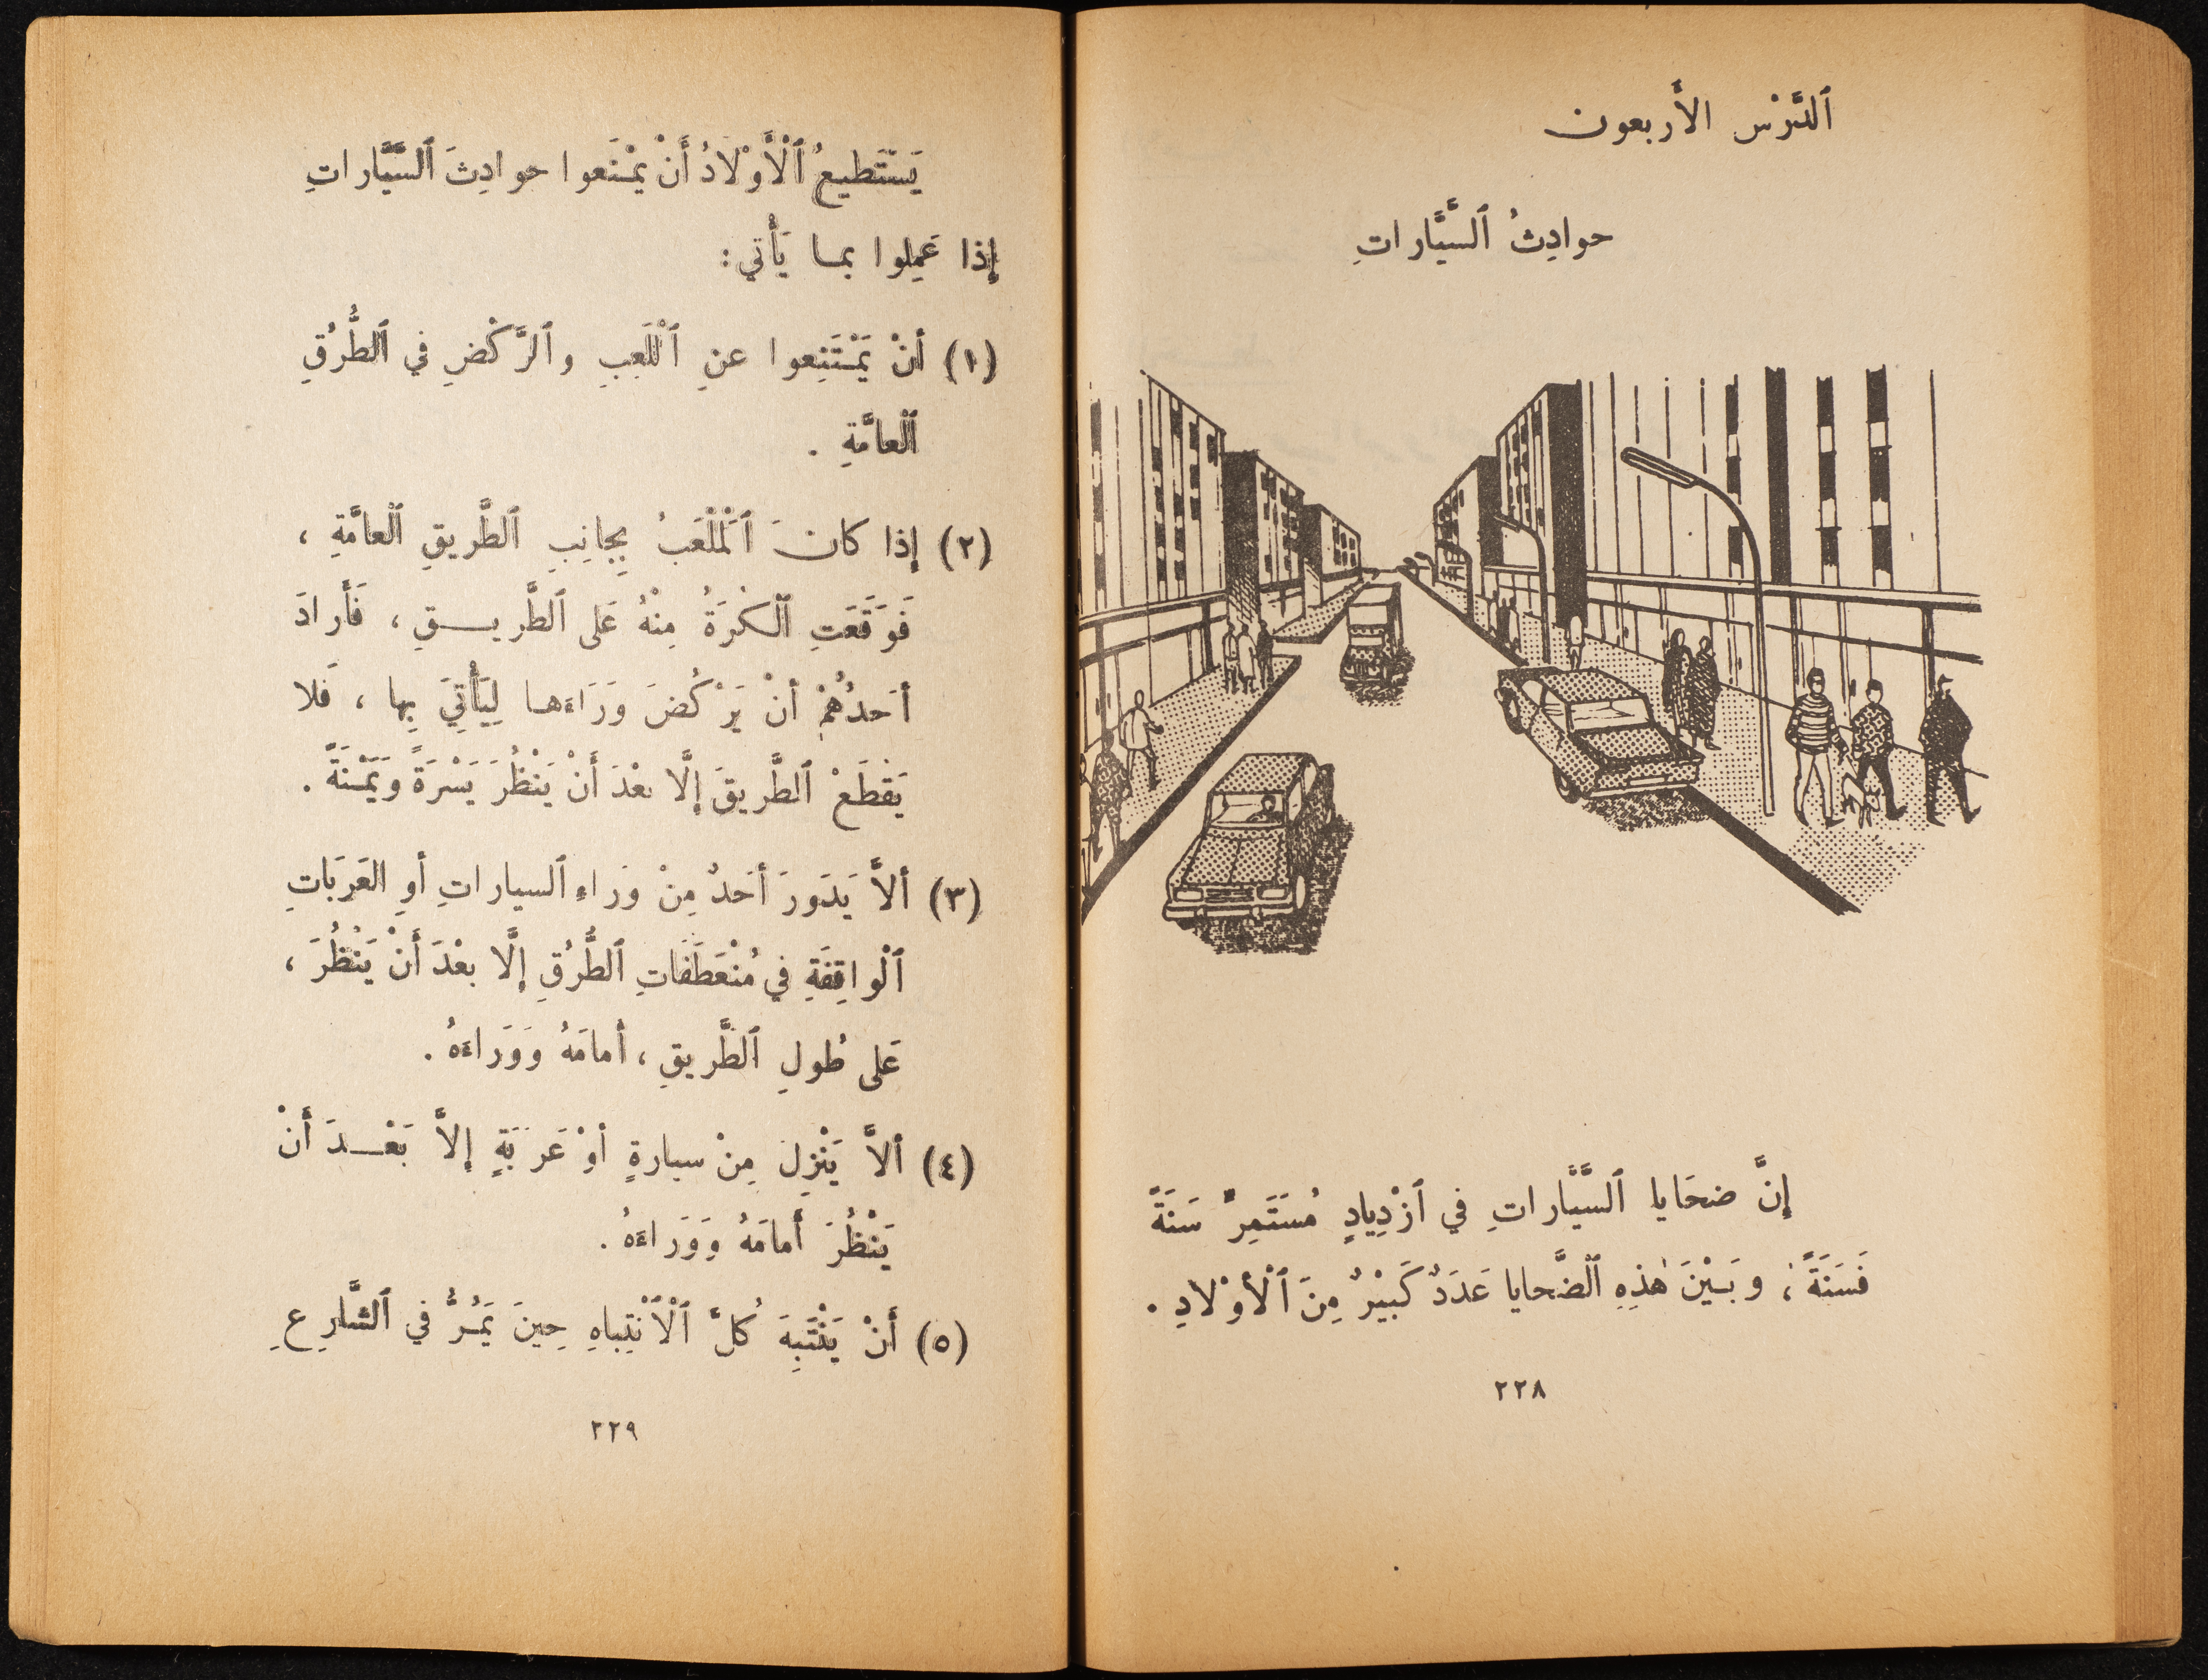 ٱلدَّرْس الأَربعون
حوادِثُ ٱلسَّيَّاراتِ
إِنَّ ضحَايا ٱلسَّيَّاراتِ في ٱزْدِيادٍ مُستَمِرٍّ سَنَةً
فَسَنَةً ، وبَيْنَ هٰذِهِ ٱلضَّحايا عَدَدٌ كَبيْرٌ مِنَ ٱلْأَوْلادِ .
٢٢٨
يَسْتَطيعُ ٱلْأَوْلَادُ أَنْ يَمْنَعوا حوادِثَ ٱلسَّيَّاراتِ
إِذا عَمِلوا بمـا يَأْتي :
(١) أَنْ يَمْتَنِعوا عنِ ٱلْلَعِبِ وٱلرَّكْضِ في ٱلطُّرُقِ
ٱلْعامَّةِ .
(٢) إِذا كانَ ٱلْمَلْعَبُ بِجانِبِ ٱلطَّريقِ ٱلْعامَّةِ ،
فَوَقَعَتِ ٱلْكُرَةُ مِنْهُ عَلى ٱلطَّريــقِ ، فَأَرادَ
أحَدُهُمْ أَنْ يَرْكُضَ وَرَاءَهـا لِيَأْتِيَ بِها ، فَلا
يَقْطَعْ ٱلطَّريقَ إِلَّا بعْدَ أَنْ يَنْظُرَ يَسْرَةً وَيَمْنَةً .
(٣) ألاَّ يَدَورَ أحَدٌ مِنْ وَراءِ ٱلسياراتِ أوِ العَرَبَاتِ
ٱلْواقِفَةِ في مُنْعَطَفَاتِ ٱلطُّرُقِ إِلَّا بعْدَ أَنْ يَنْظُرَ ،
عَلى طُولِ ٱلطَّريقِ ، أَمامَهُ وَوَراءَهُ .
(٤) ألاَّ يَنْزِلَ مِنْ سيارةٍ أوْ عَرَبَةٍ إلاَّ بَعْــدَ أَنْ
يَنْظُرَ أَمامَهُ وَوَراءَهُ .
(٥) أَنْ يَنْتَبِهَ كُلَّ ٱلْاَنْتِباهِ حِينَ يَمُرُّ في ٱلشَّارِعِ
٢٢٩